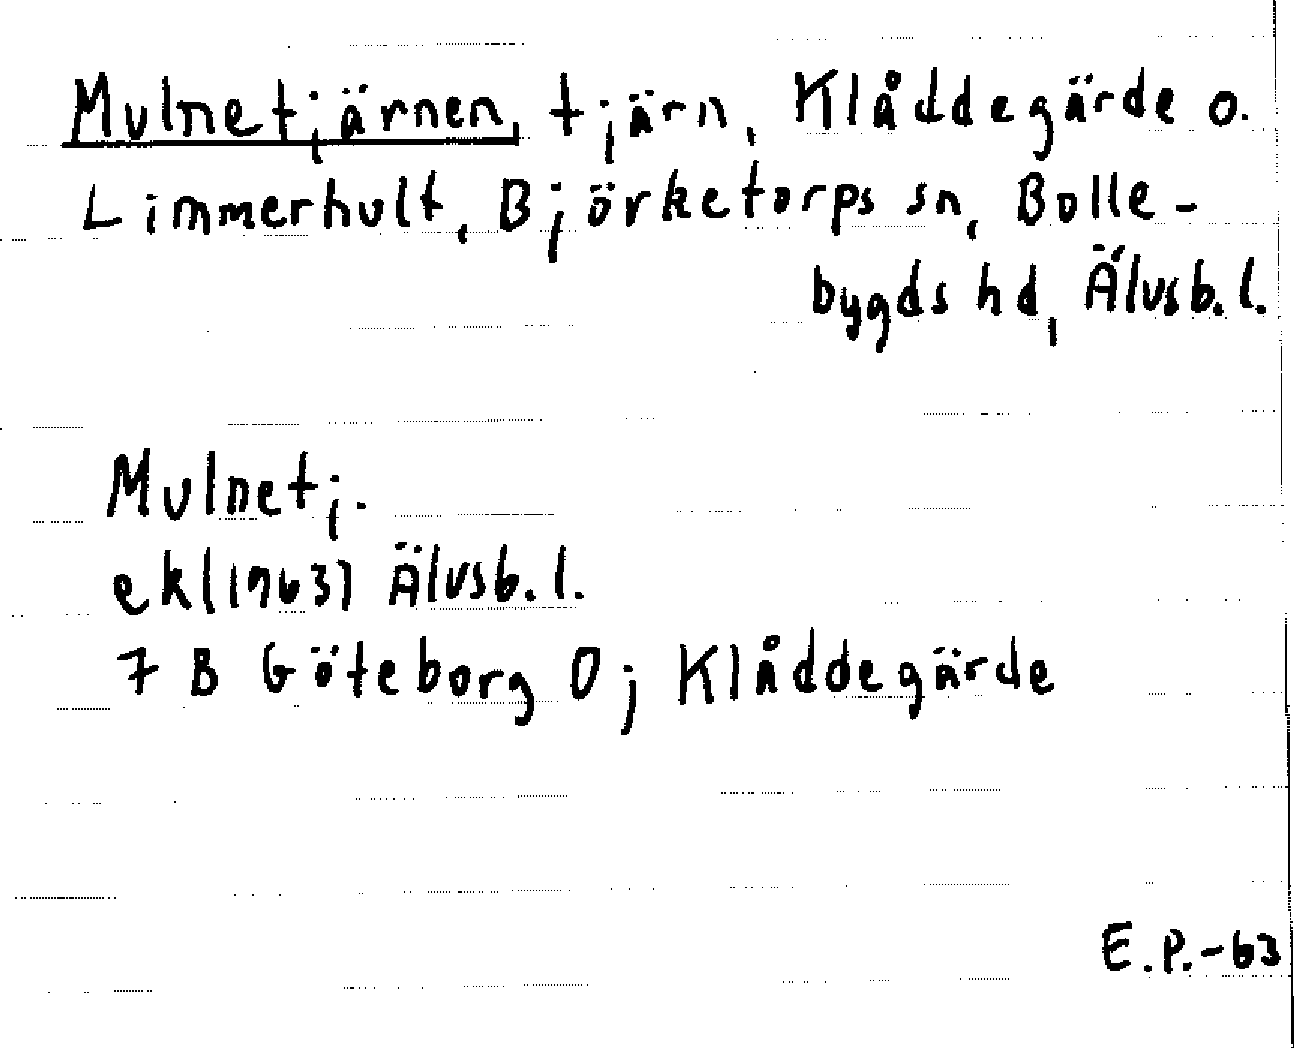 Mulnetjärnen, tjärn, Klåddegärde o.
Limmerhult, Björketorps sn, Bolle-
bygds hd, Älvsb. l.
Mulnetj.
ek(1963) Älvsb. l.
7 B Göteborg O; Klåddegärde
E.P.-63